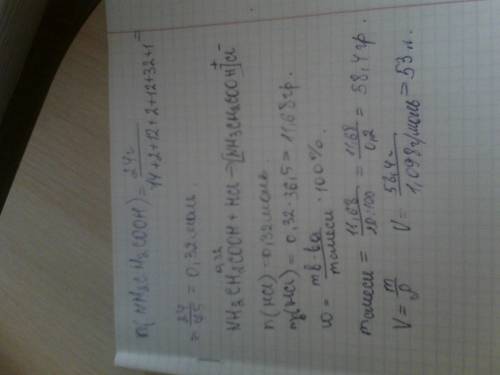 n(NH2CH2COOH) = 24г / 14+2+12+2+12+32+1 =
= 24/75 = 0,32 моль
0,32
NH2CH2COOH + HCl → [NH3CH2COOH]⁺Cl⁻
n(HCl) = 0,32 моль
m(HCl) = 0,32 · 36,5 = 11,68 гр.
ω = mв-ва / mсмеси · 100%
mсмеси = 11,68 / 20:100 = 11,68 / 0,2 = 58,4 гр.
V = m/ρ V = 58,4 / 1,098 г/моль = 53 л.